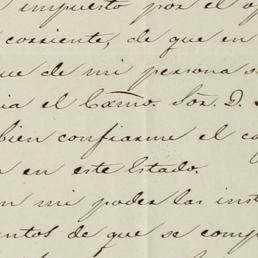 impuesto por el
corriente, de que en
que de mi persona
el Exmo. Sor. D.
bien confiarme el
en este Estado.
mi poder las
de que se